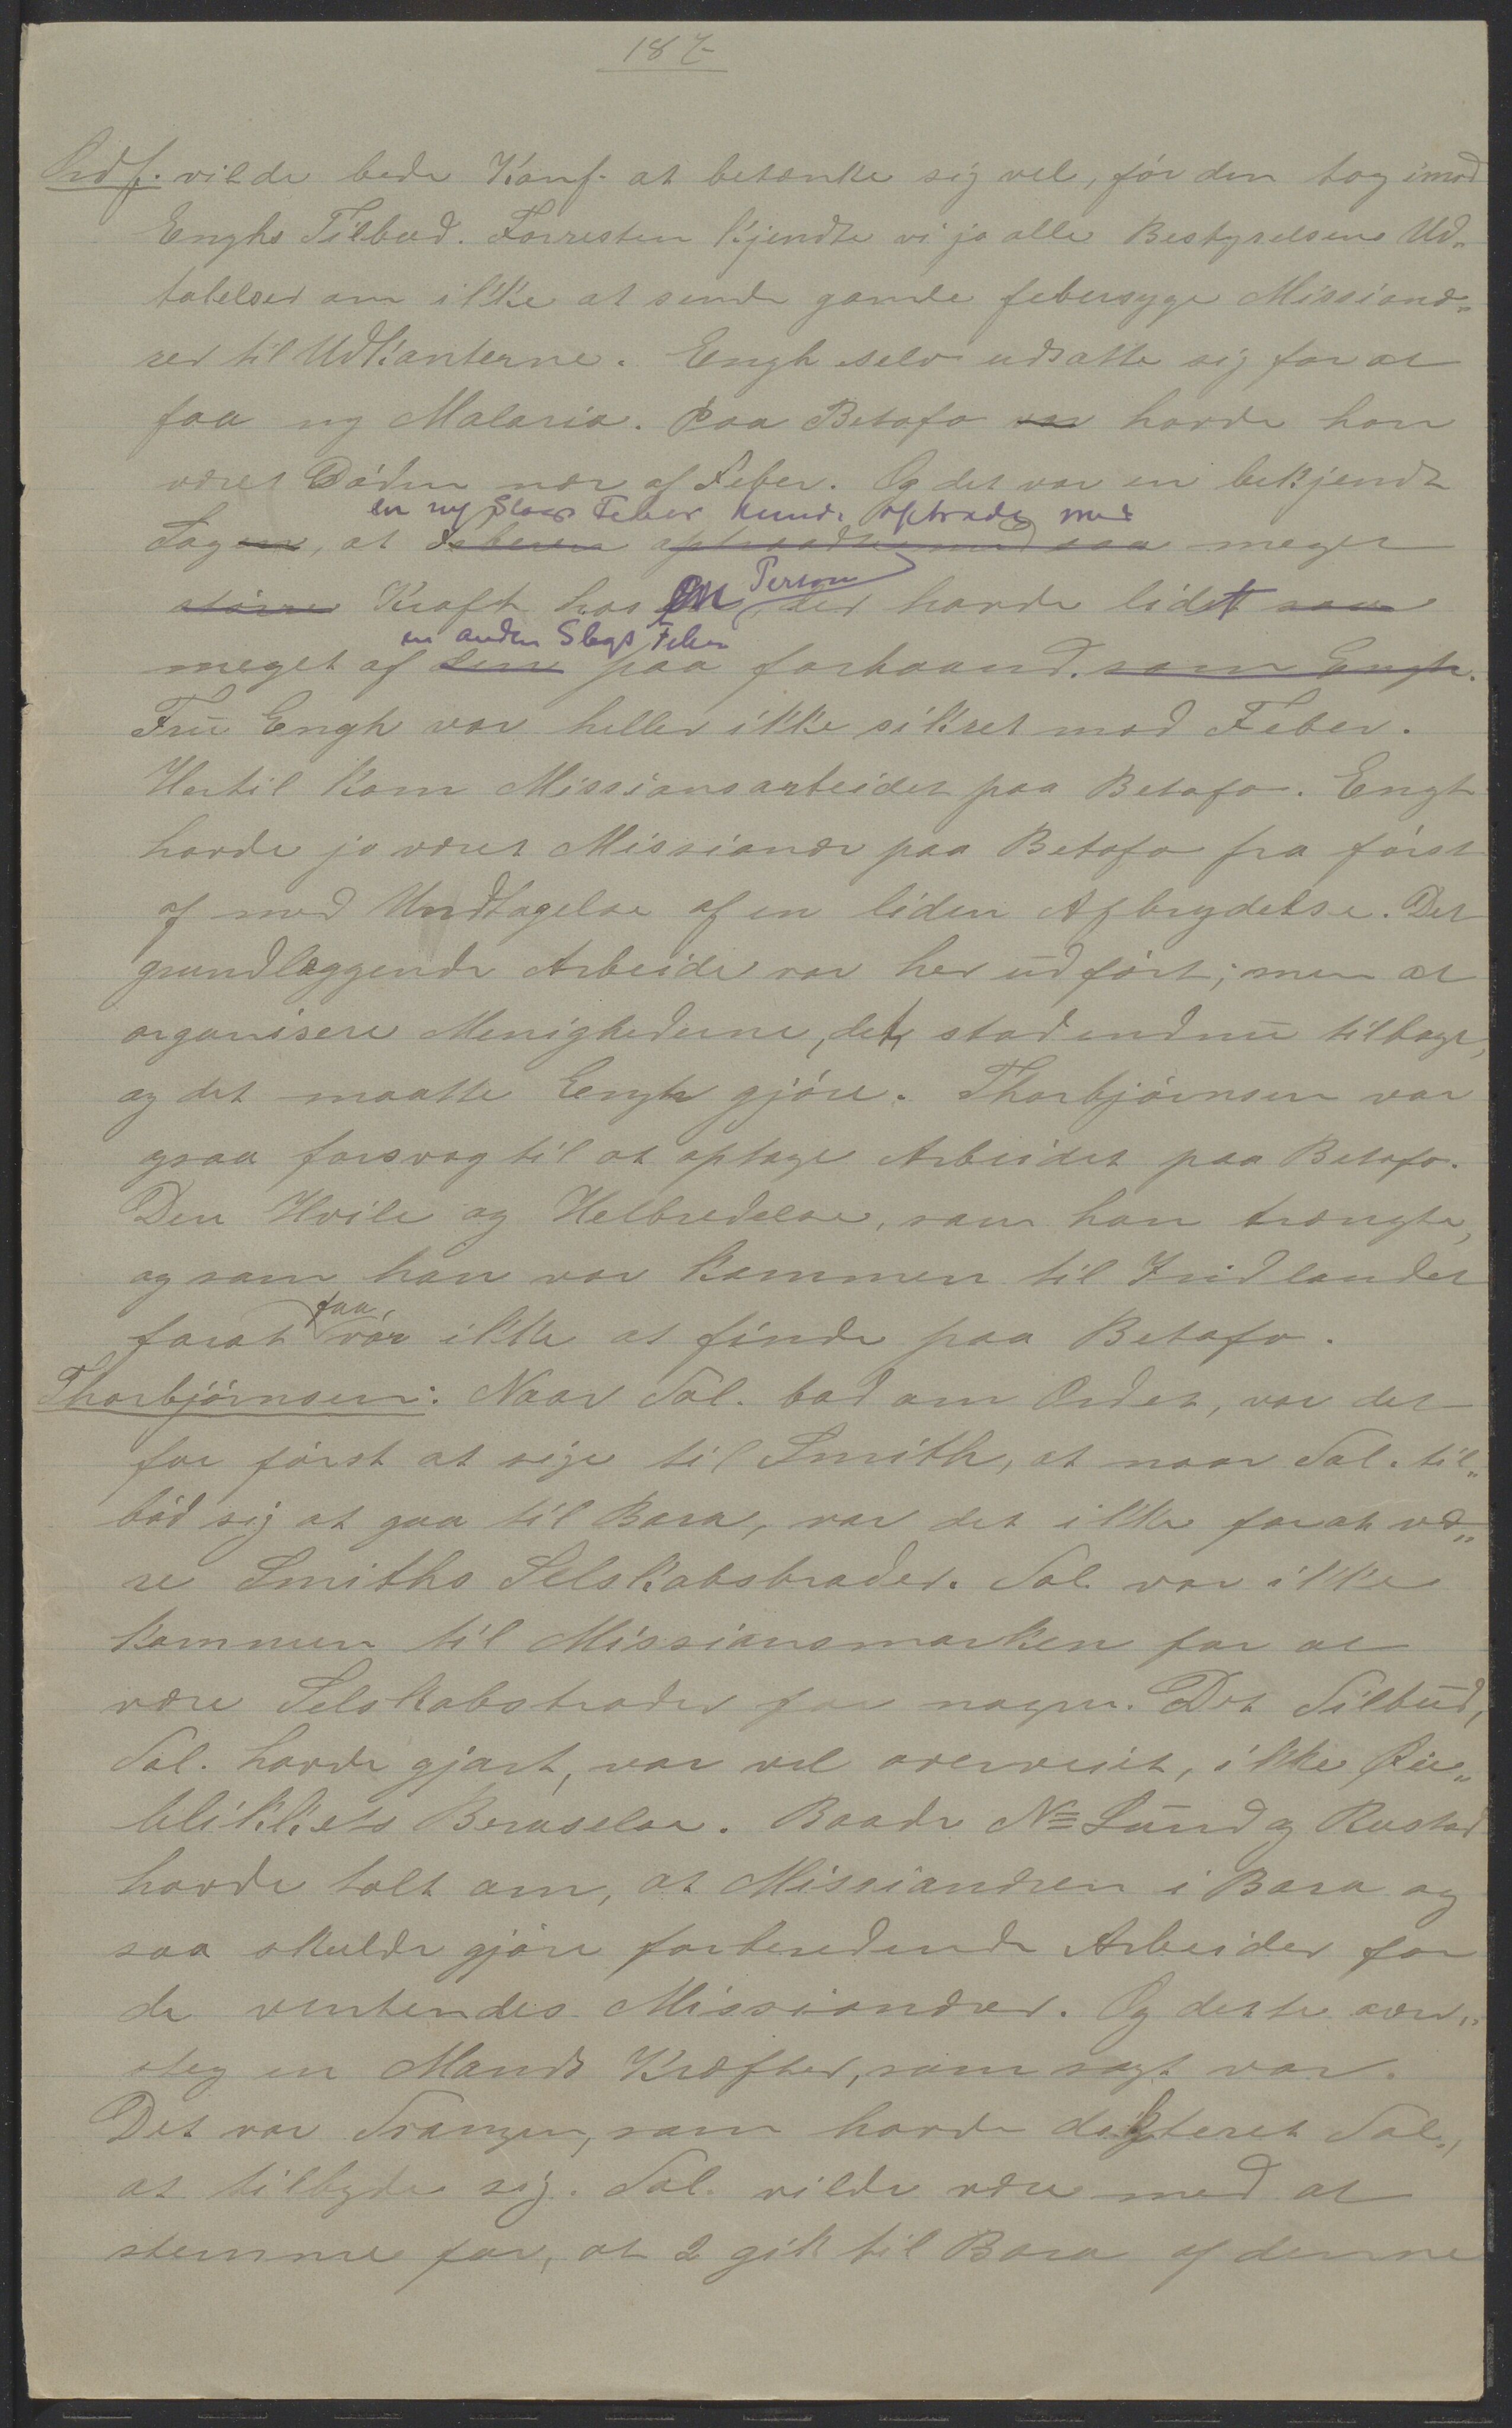 187
Ordf. vilde bede Konf. at betænke sig vel, før den tog imod
Enghs Tilbud. Forresten kjendte vi jo alle Bestyrelsens Ud„
talelser om ikke at sende gamle febersyge Missionæ„
rer til Udkanterne. Engh selv udsatte sig for at
faa ny Malaria. Paa Betafo var havde han
været Døden nær af Feber. Og det var en bekjendt
en ny Slags Feber kunde optræde med
Sagen, at Feberen optraadte med saa meget
større Kraft hos en Person, der havde lidt saa
en anden Slags Feber
meget af den paa forhaand. som Engh.
Fru Engh var heller ikke sikret mod Feber.
Hertil kom Missionsarbeidet paa Betafo. Engh
havde jo været Missionær paa Betafo fra først
af med Undtagelse af en liden Afbrydelse. Det
grundlæggende Arbeide var her udført; men at
organisere Menighederne, det stod endnu tilbage,
og det maatte Engh gjøre. Thorbjørnsen var
ogsaa forsvag til at optage Arbeidet paa Betafo.
Den Hvile og Helbredelse, som han trængte,
og som han var kommen til Indlandet
forat faa, var ikke at finde paa Betafo.
Thorbjørnsen: Naar Tal. bad om Ordet, var det
for først at sige til Smith, at naar Tal. til„
bød sig at gaa til Bara, var det ikke forat væ„
re Smiths Selskabsbroder. Tal. var ikke
kommen til Missionsmarken for at
være Selskabsbroder for nogen. Det Tilbud,
Tal. havde gjort, var vel overveiet, ikke Øie„
blikkets Beruselse. Baade Ns Lund og Rustad
havde talt om, at Missionæren i Bara og
saa skulde gjøre forberedende Arbeider for
de ventendes Missionærer. Og dette over„
steg en Mands Kræfter, som sagt var.
Det var Trangen, som havde dikteret Tal.,
at tilbyde sig. Tal. vilde være med at
stemme for, at 2 gik til Bara af denne